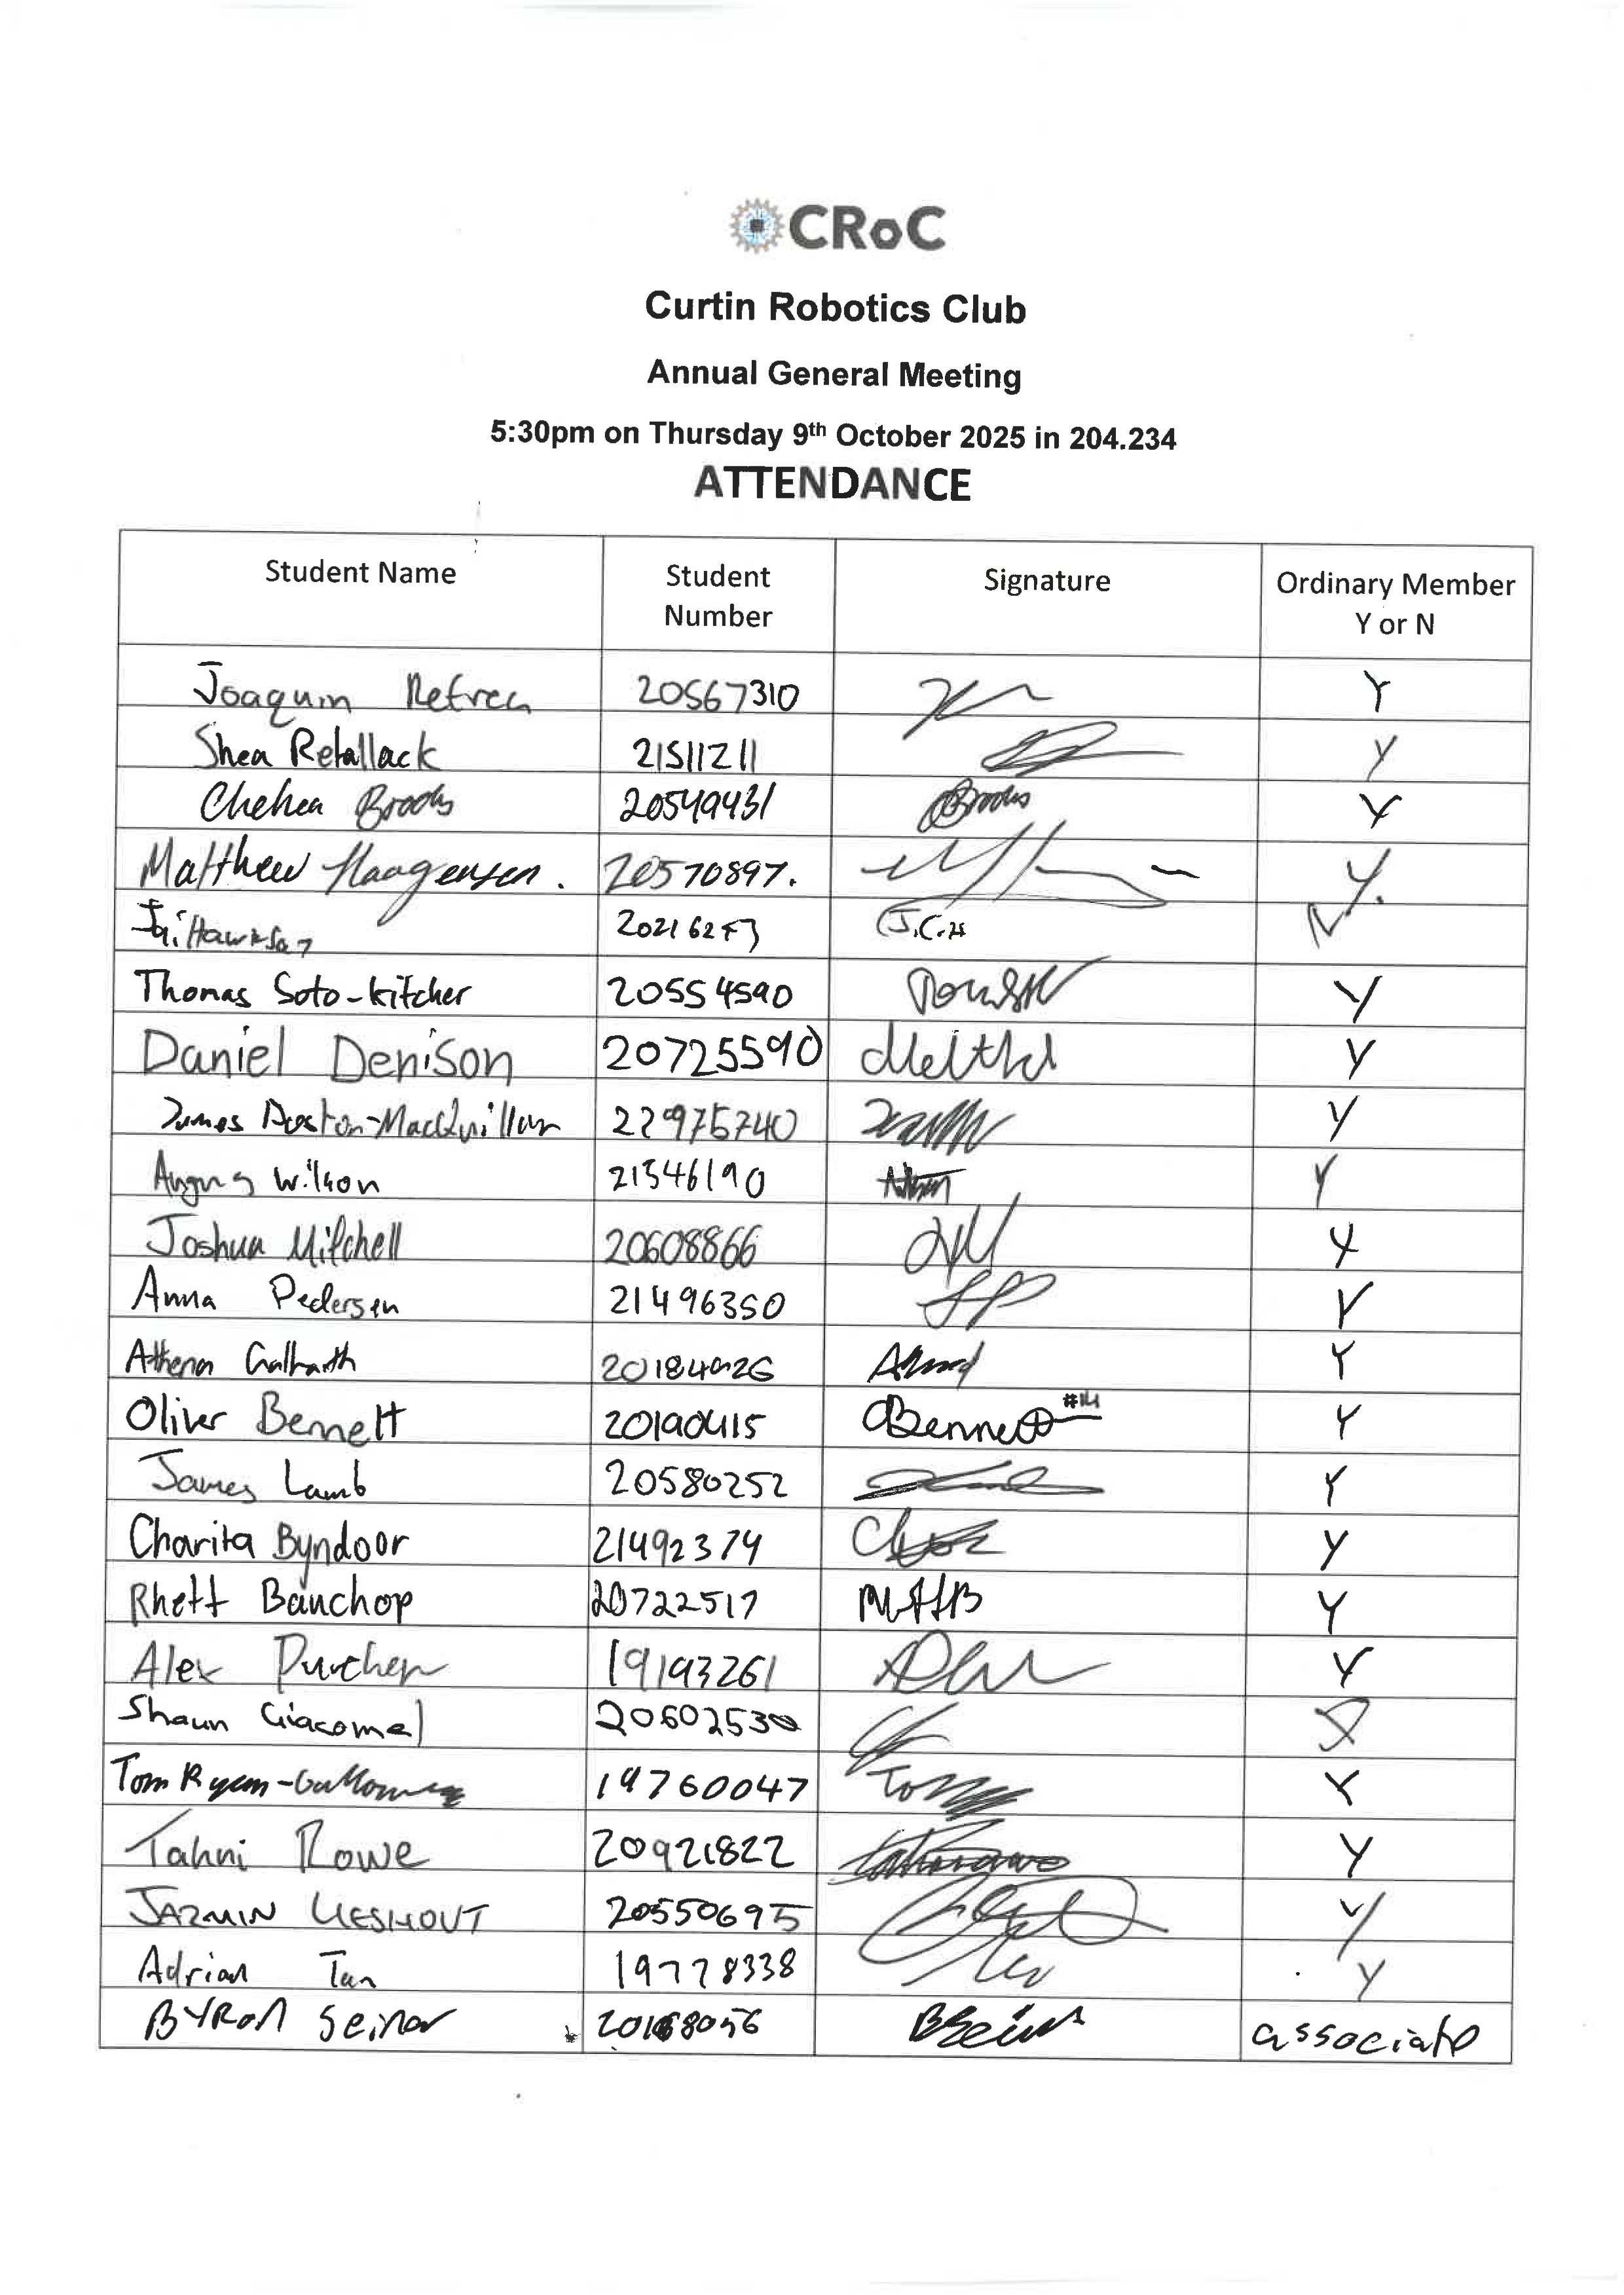 CRoC
Curtin Robotics Club
Annual General Meeting
5:30pm on Thursday 9th October 2025 in 204.234
ATTENDANCE
Student Name Student Number Signature Ordinary Member Y or N
Joaquin 20567310 Y
Shea Retallack 21511211 Y
Chelsea Brooks 20549431 Brooks Y
Matthew Haagensen. 20570897. Y.
Jai Hawkson J.C.H N
Thomas Soto-kitcher 20554590 Y
Daniel Denison 20725590 Y
James Y
Angus Wilson 21546190 Y
Joshua Mitchell 20608866 Y
Anna Pedersen 21496350 Y
Athena Galbraith Y
Oliver Bennett 20190415 OBennett #14 Y
James Lamb 20580252 Y
Charita Byndoor 21492374 Y
Rhett Bauchop 20722517 Y
Alex 19193261 Y
Shaun Giacomel
Tom Ryan- 19760047 Tom Y
Tahni Rowe 20921822 Y
JAZMIN LIESHOUT 20550695 Y
Adrian Tan 19778338 Y
BYRON Seinor associate